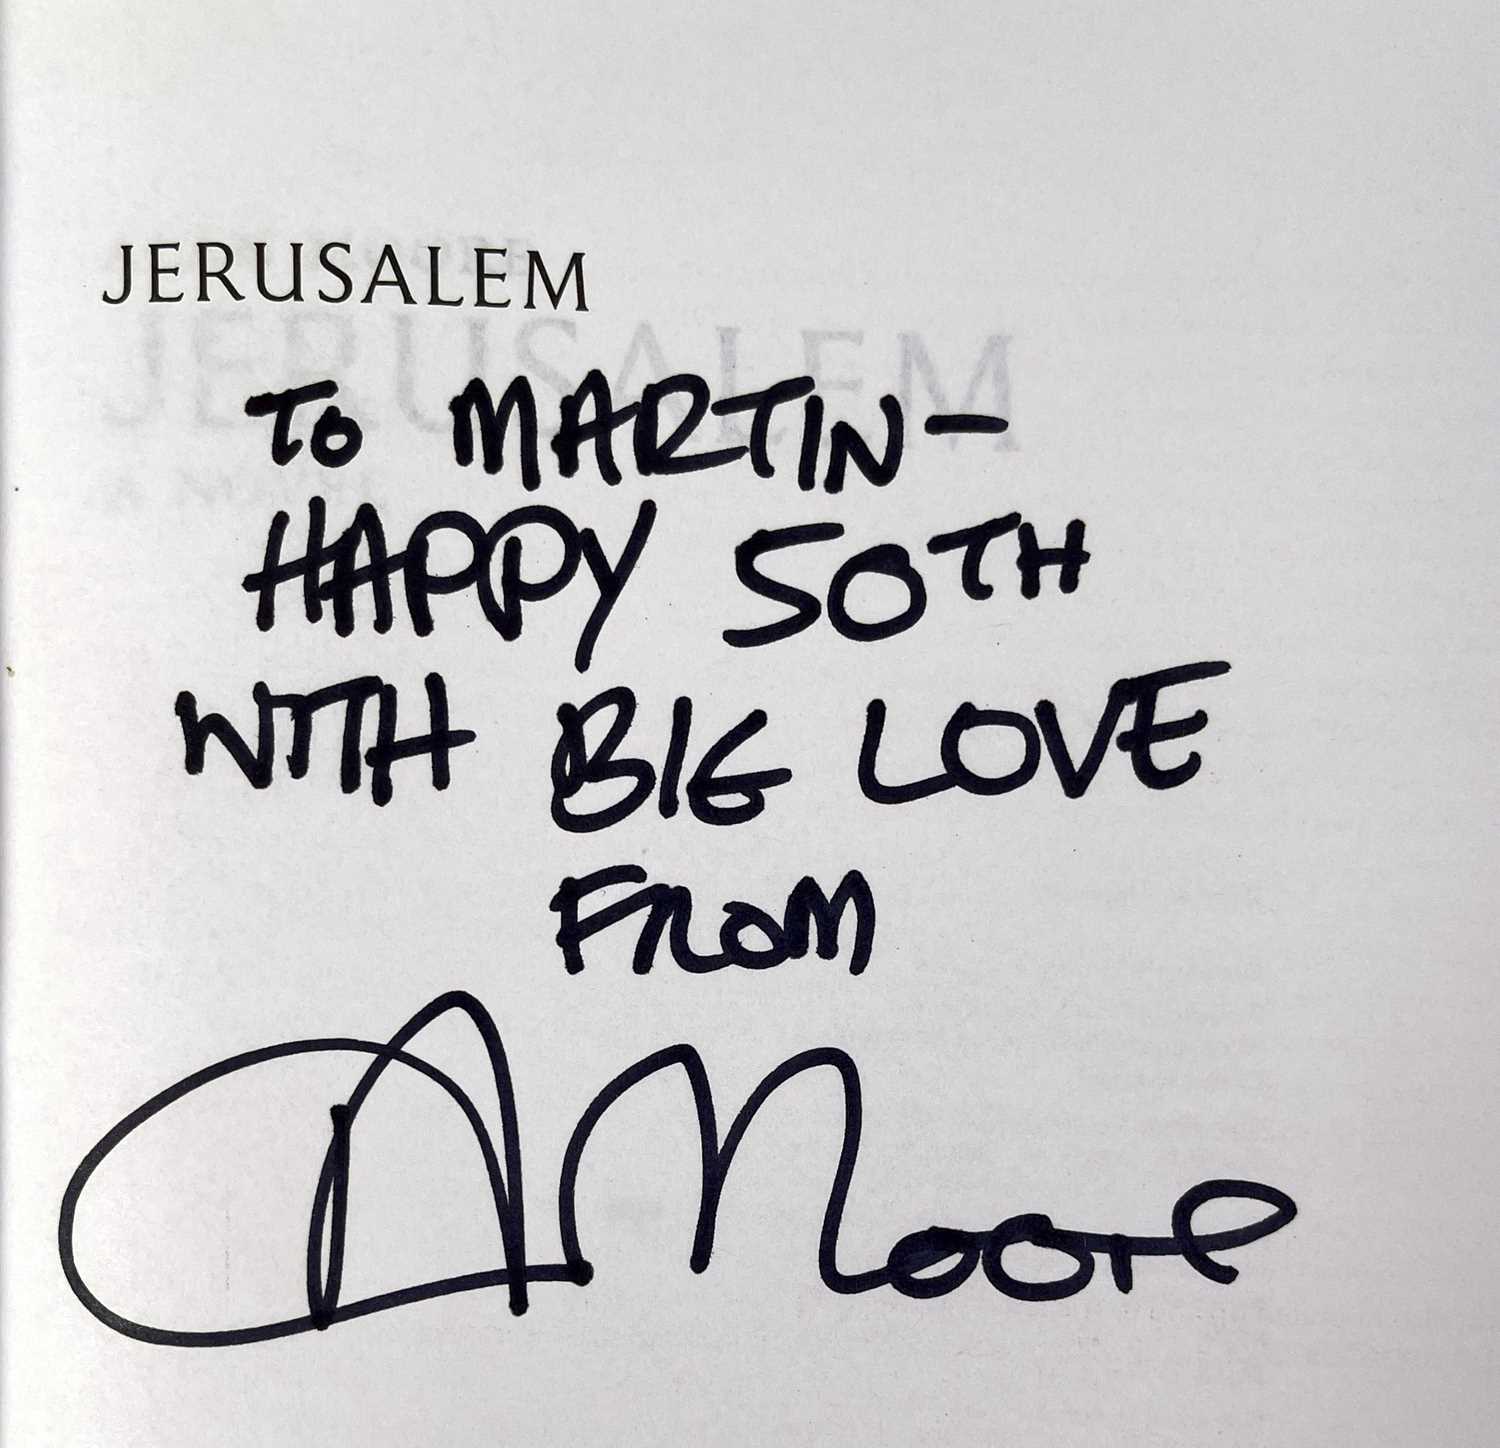 JERUSALEM
TO MARTIN-
HAPPY 50TH
WITH BIG LOVE
FROM
A Moore